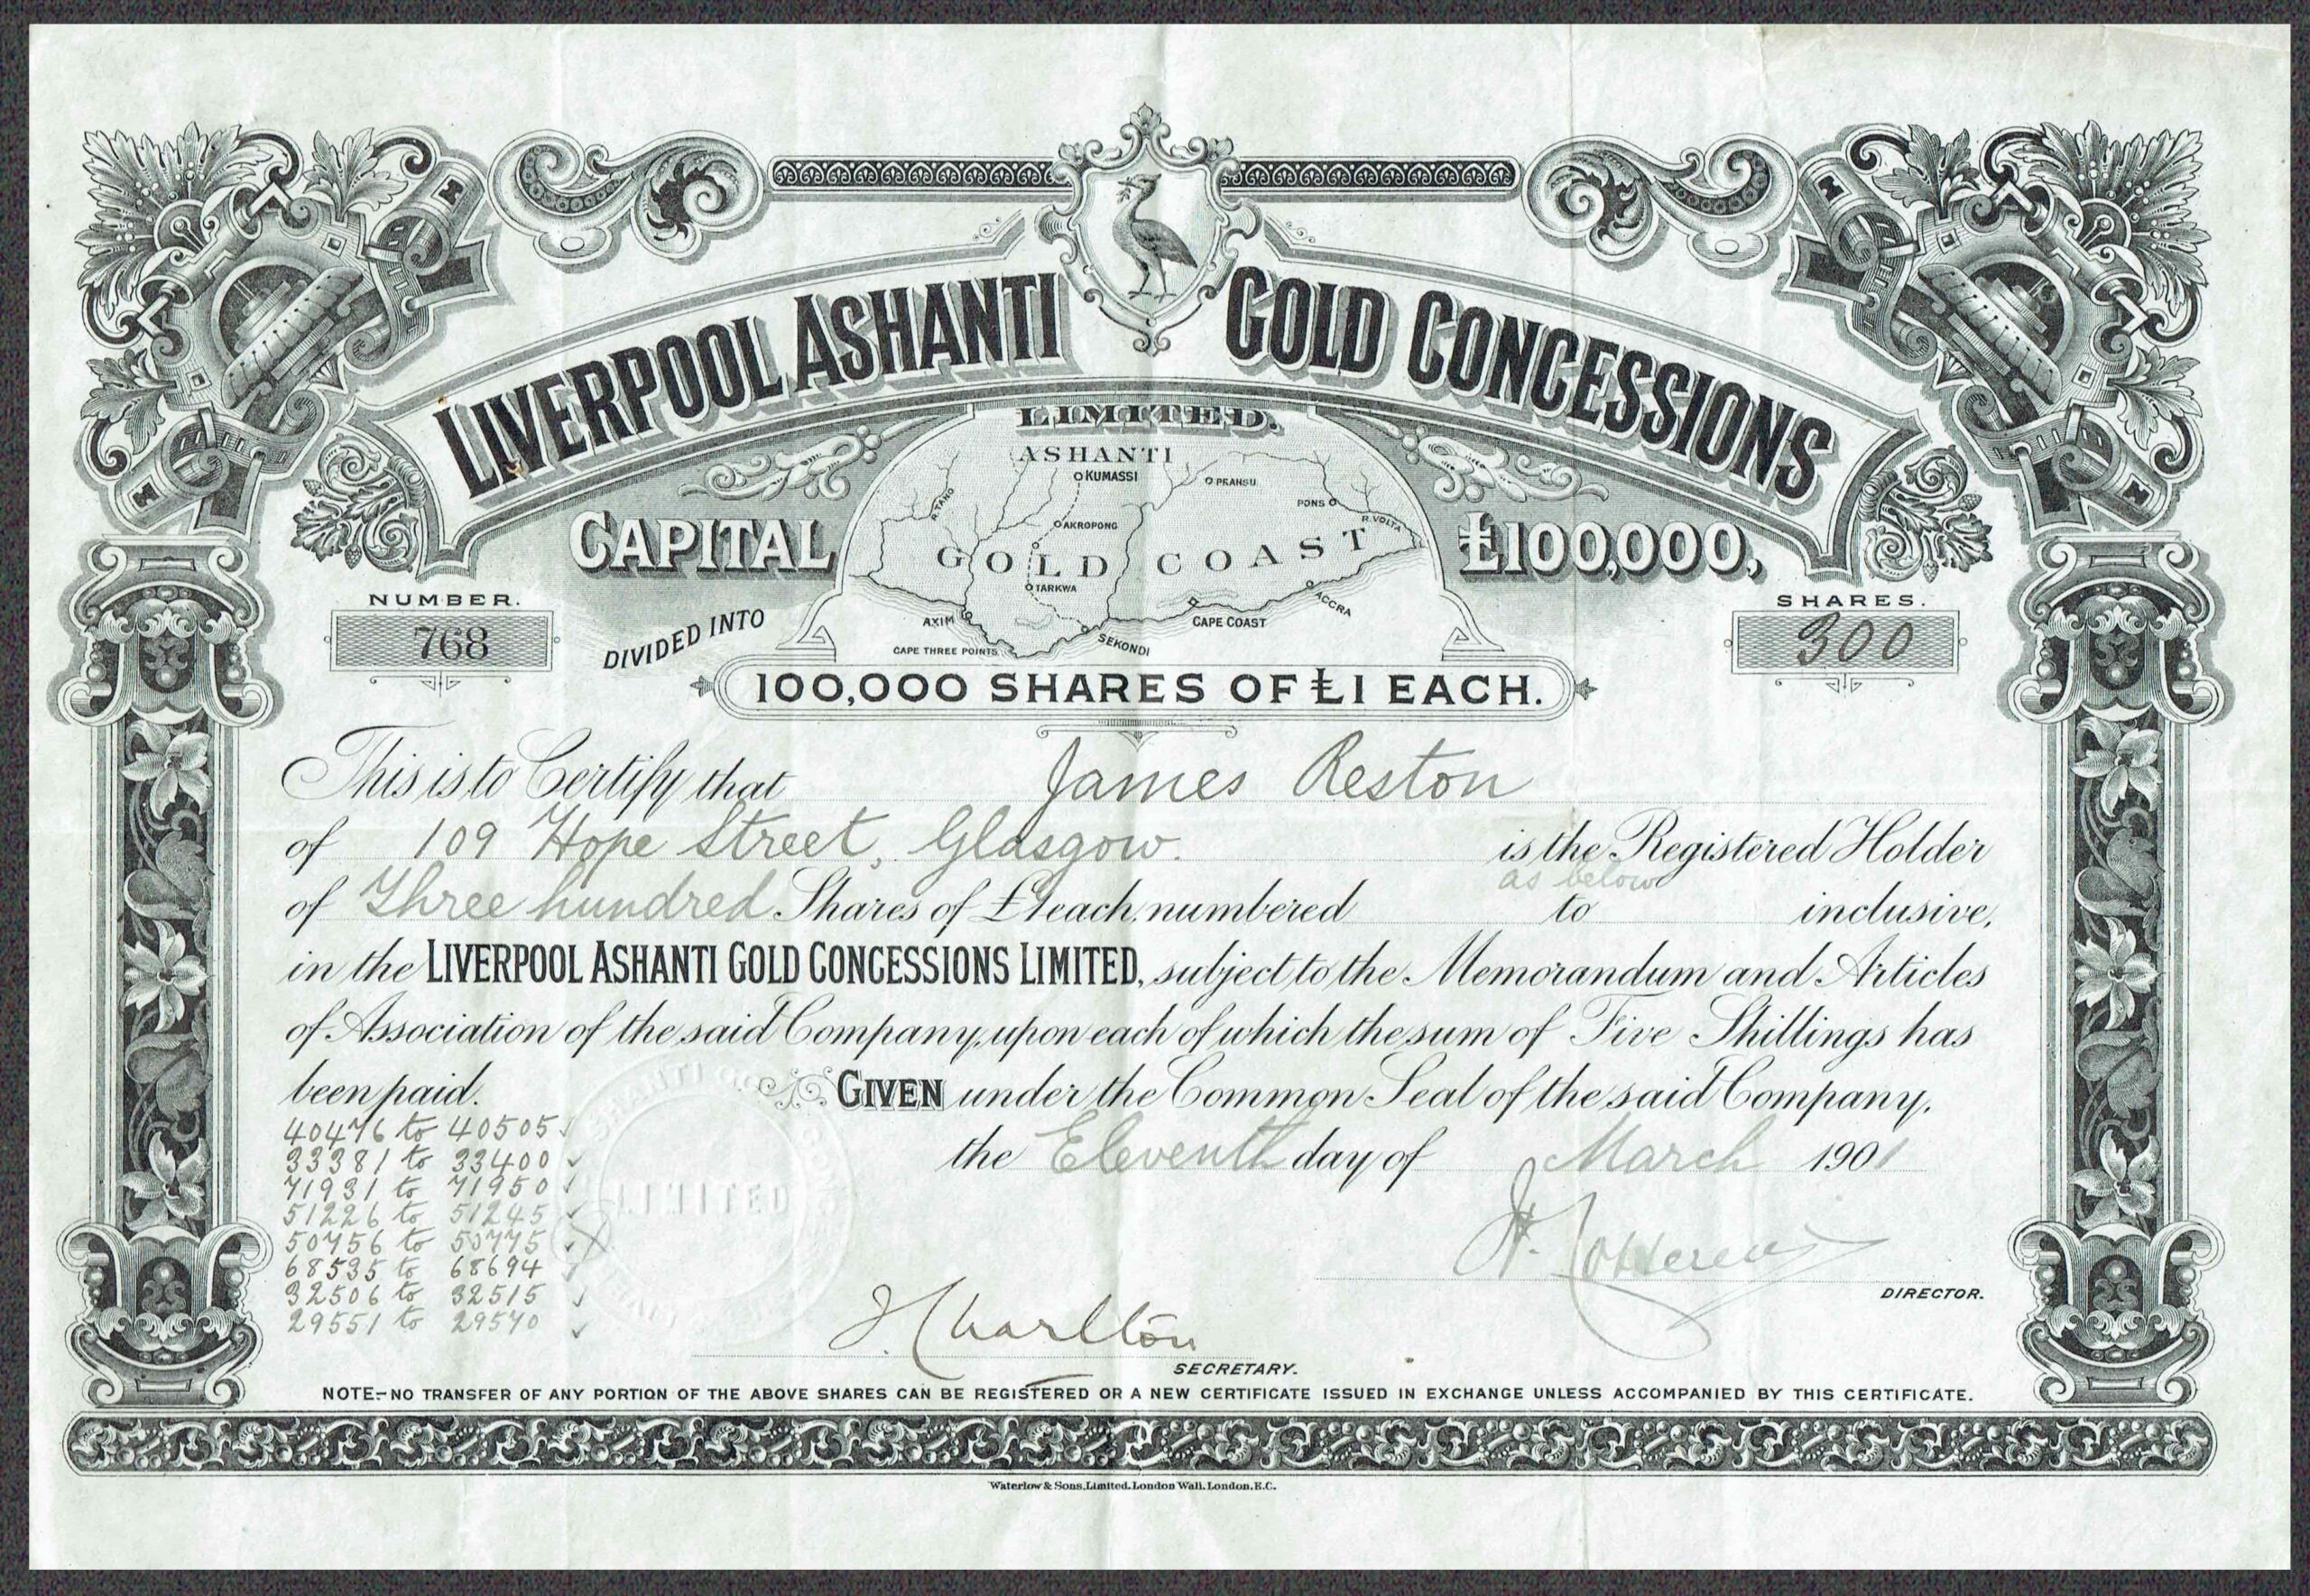 LIVERPOOL ASHANTI GOLD CONCESSIONS
LIMITED.
ASHANTI
KUMASSI
PRAHSU
PONS
R. TANO
AKROPONG
R. VOLTA
CAPITAL
£100,000,
GOLD COAST
TARKWA
ACCRA
AXIM
CAPE COAST
SEKONDI
CAPE THREE POINTS
NUMBER.
768
DIVIDED INTO
SHARES.
300
100,000 SHARES OF £1 EACH.
This is to Certify that James Reston
of 109 Hope Street, Glasgow. is the Registered Holder
as below
of Three hundred Shares of £1 each, numbered to inclusive,
in the LIVERPOOL ASHANTI GOLD CONCESSIONS LIMITED, subject to the Memorandum and Articles
of Association of the said Company, upon each of which the sum of Five Shillings has
been paid. GIVEN under the Common Seal of the said Company,
the Eleventh day of March 1901
40476 to 40505
33381 to 33400
71931 to 71950
51226 to 51245
50756 to 50775
68535 to 68694
32506 to 32515
29551 to 29570
LIMITED
DIRECTOR.
J. Charlton
SECRETARY.
NOTE:-NO TRANSFER OF ANY PORTION OF THE ABOVE SHARES CAN BE REGISTERED OR A NEW CERTIFICATE ISSUED IN EXCHANGE UNLESS ACCOMPANIED BY THIS CERTIFICATE.
Waterlow & Sons, Limited. London Wall. London. E.C.